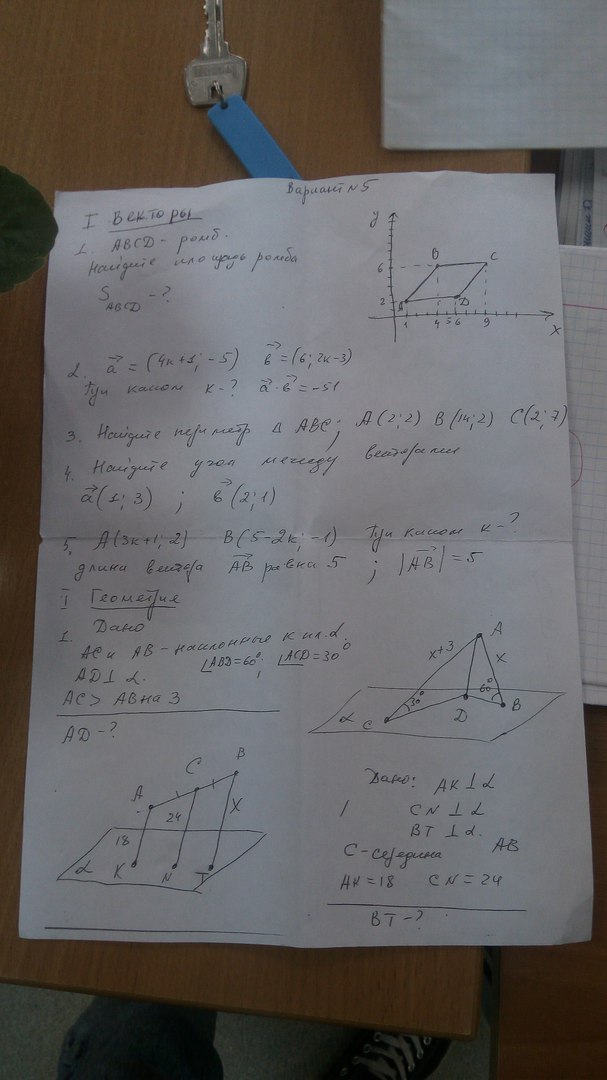 Вариант N5
I Векторы
1. ABCD - ромб.
Найдите площадь ромба
S ABCD - ?
y
6
2
B
C
A
D
1
4
5
6
9
x
2. a = (4k+1; -5) b = (6; 2k-3)
При каком k-? a·b = -51
3. Найдите периметр Δ ABC; A(2;2) B(14;2) C(2;7)
4. Найдите угол между векторами
a(1;3) ; b(2;1)
5. A(3k+1; 2) B(5-2k; -1) При каком k-?
длина вектора AB равна 5 ; |AB| = 5
I Геометрия
1. Дано
AC и AB - наклонные к пл. α.
AD⊥α. ∠ABD=60°; ∠ACD=30°
AC > AB на 3
AD-?
A
x+3
x
30°
60°
α
C
D
B
A
C
B
24
x
18
α
K
N
T
Дано: AK ⊥ α
CN ⊥ α
BT ⊥ α.
C-середина AB
AK=18 CN=24
BT-?